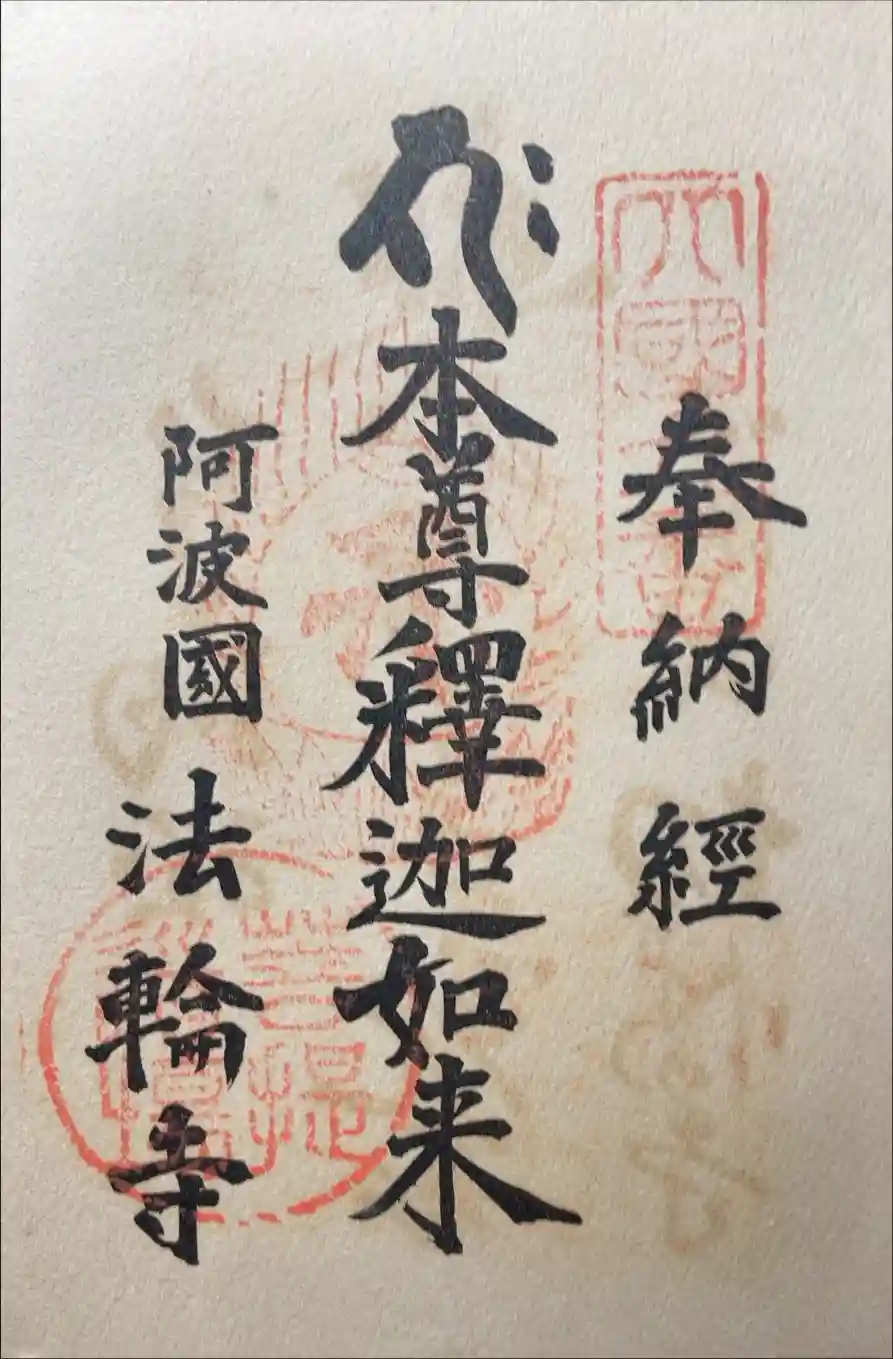 奉納經
𑖥𑖾本尊釋迦如来
阿波國法輪寺